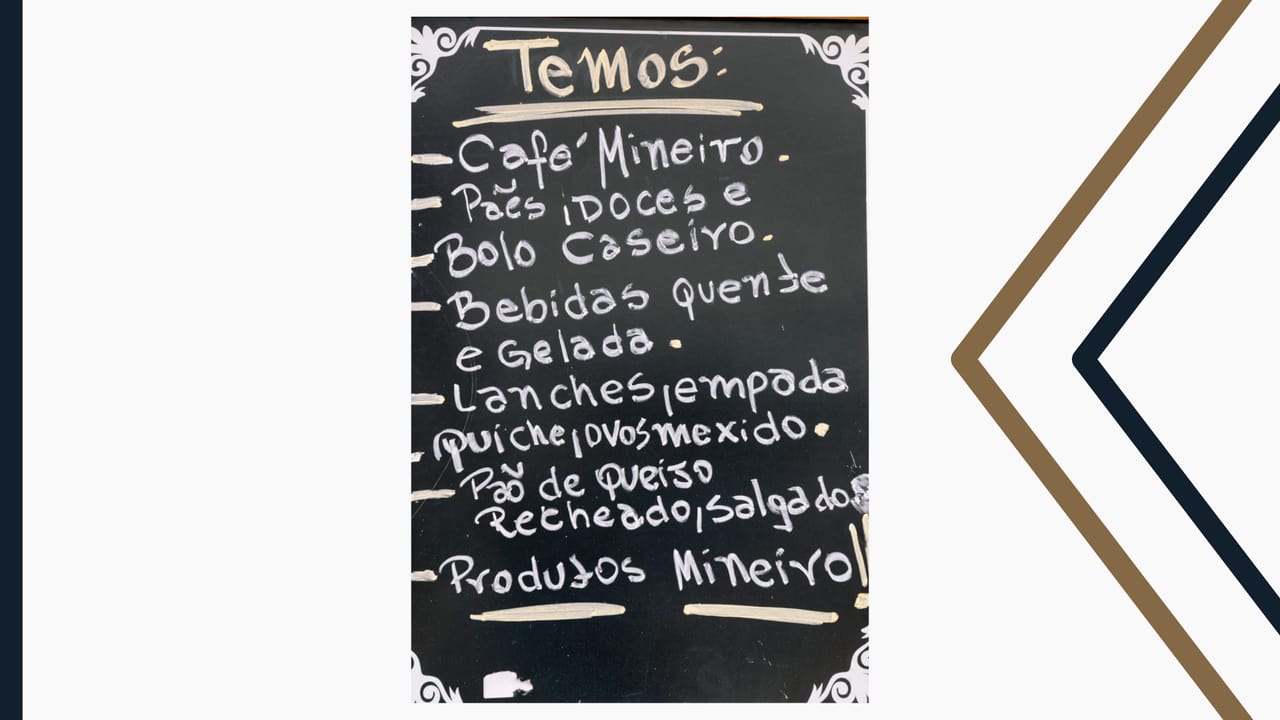 Temos:
- Café Mineiro.
- Pães, Doces e
- Bolo Caseiro.
- Bebidas Quente
e Gelada.
- Lanches, empada
- Quiche, ovos mexido.
- Pão de Queijo
Recheado, Salgados
- Produtos Mineiro!!